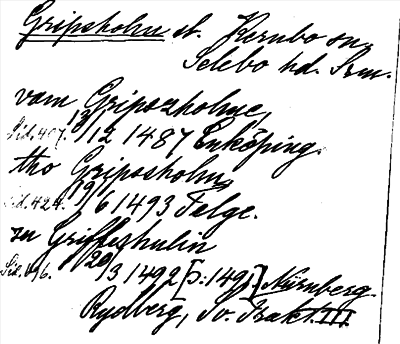 Gripsholm sl. Kernbo sn,
Selebo hd. Srm.
vam Gripszholme,
Sid. 407. 13/12 1487 Enköping.
tho Gripssholm,
Sid. 424. 19/6 1493 Telge.
zu Griffeshulin
Sid. 496. 20/3 1492 [o: 149.] Nürnberg.
Rydberg, Sv. Trakt. III.